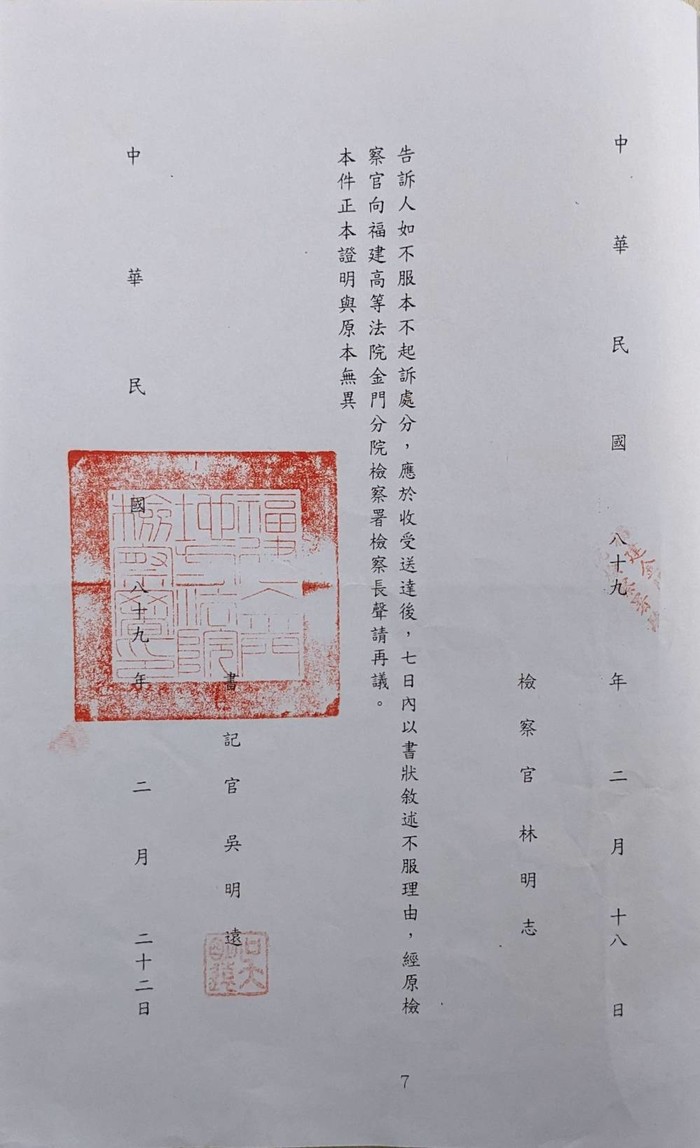 中華民國八十九年二月十八日
檢察官林明志
告訴人如不服本不起訴處分，應於收受送達後，七日內以書狀敘述不服理由，經原檢
察官向福建高等法院金門分院檢察署檢察長聲請再議。
本件正本證明與原本無異
書記官吳明遠
中華民國八十九年二月二十二日
福建金門
地方法院
檢察署印
7